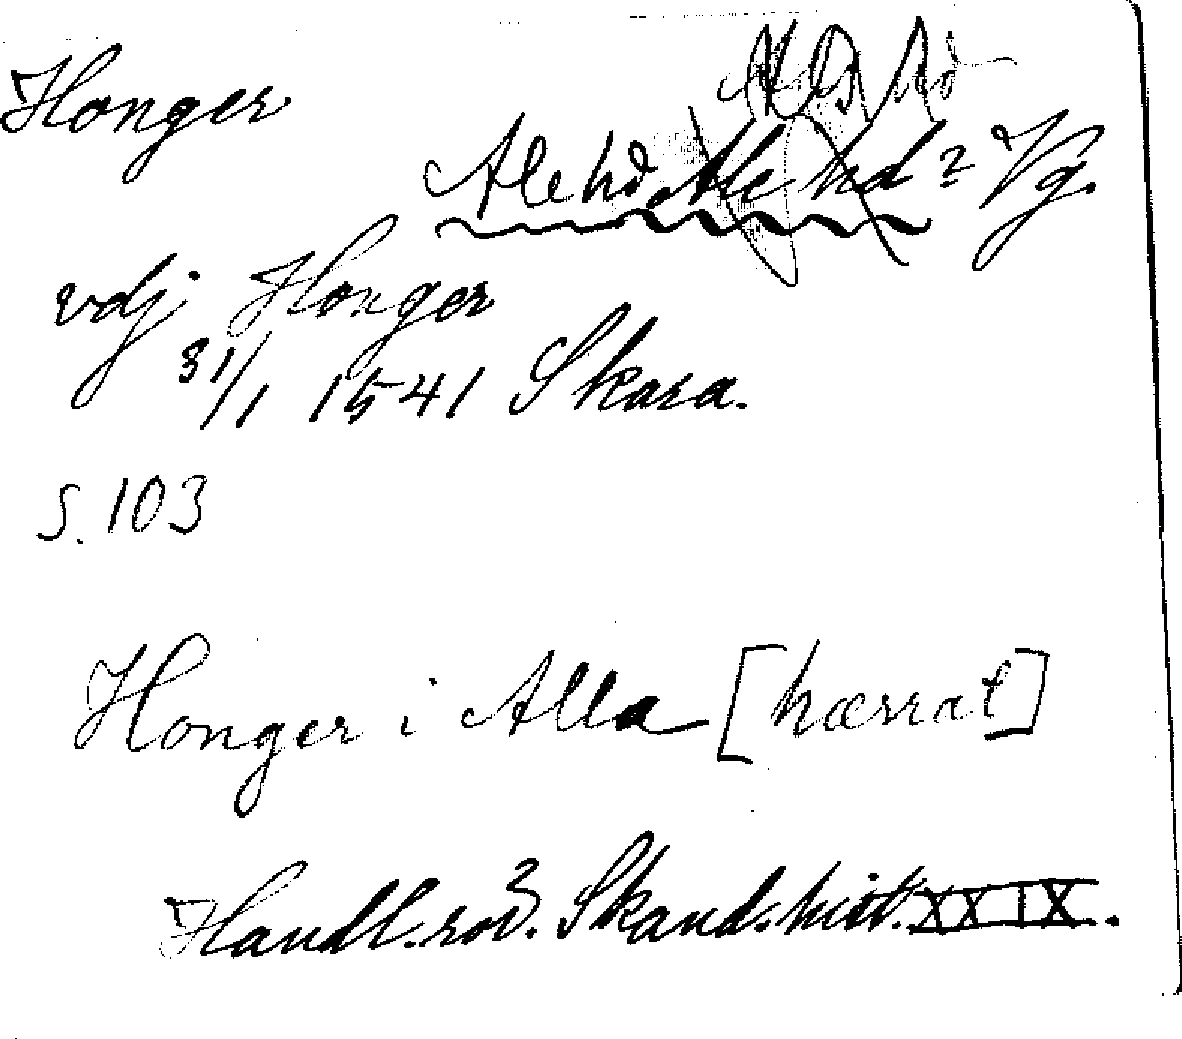 Honger
Ale hd Ale hd? Vg.
vdj. Honger
31/1 1541 Skara.
S. 103
Honger i Alla [hærrat]
Handl. rör. Skand. hist. XXIX.